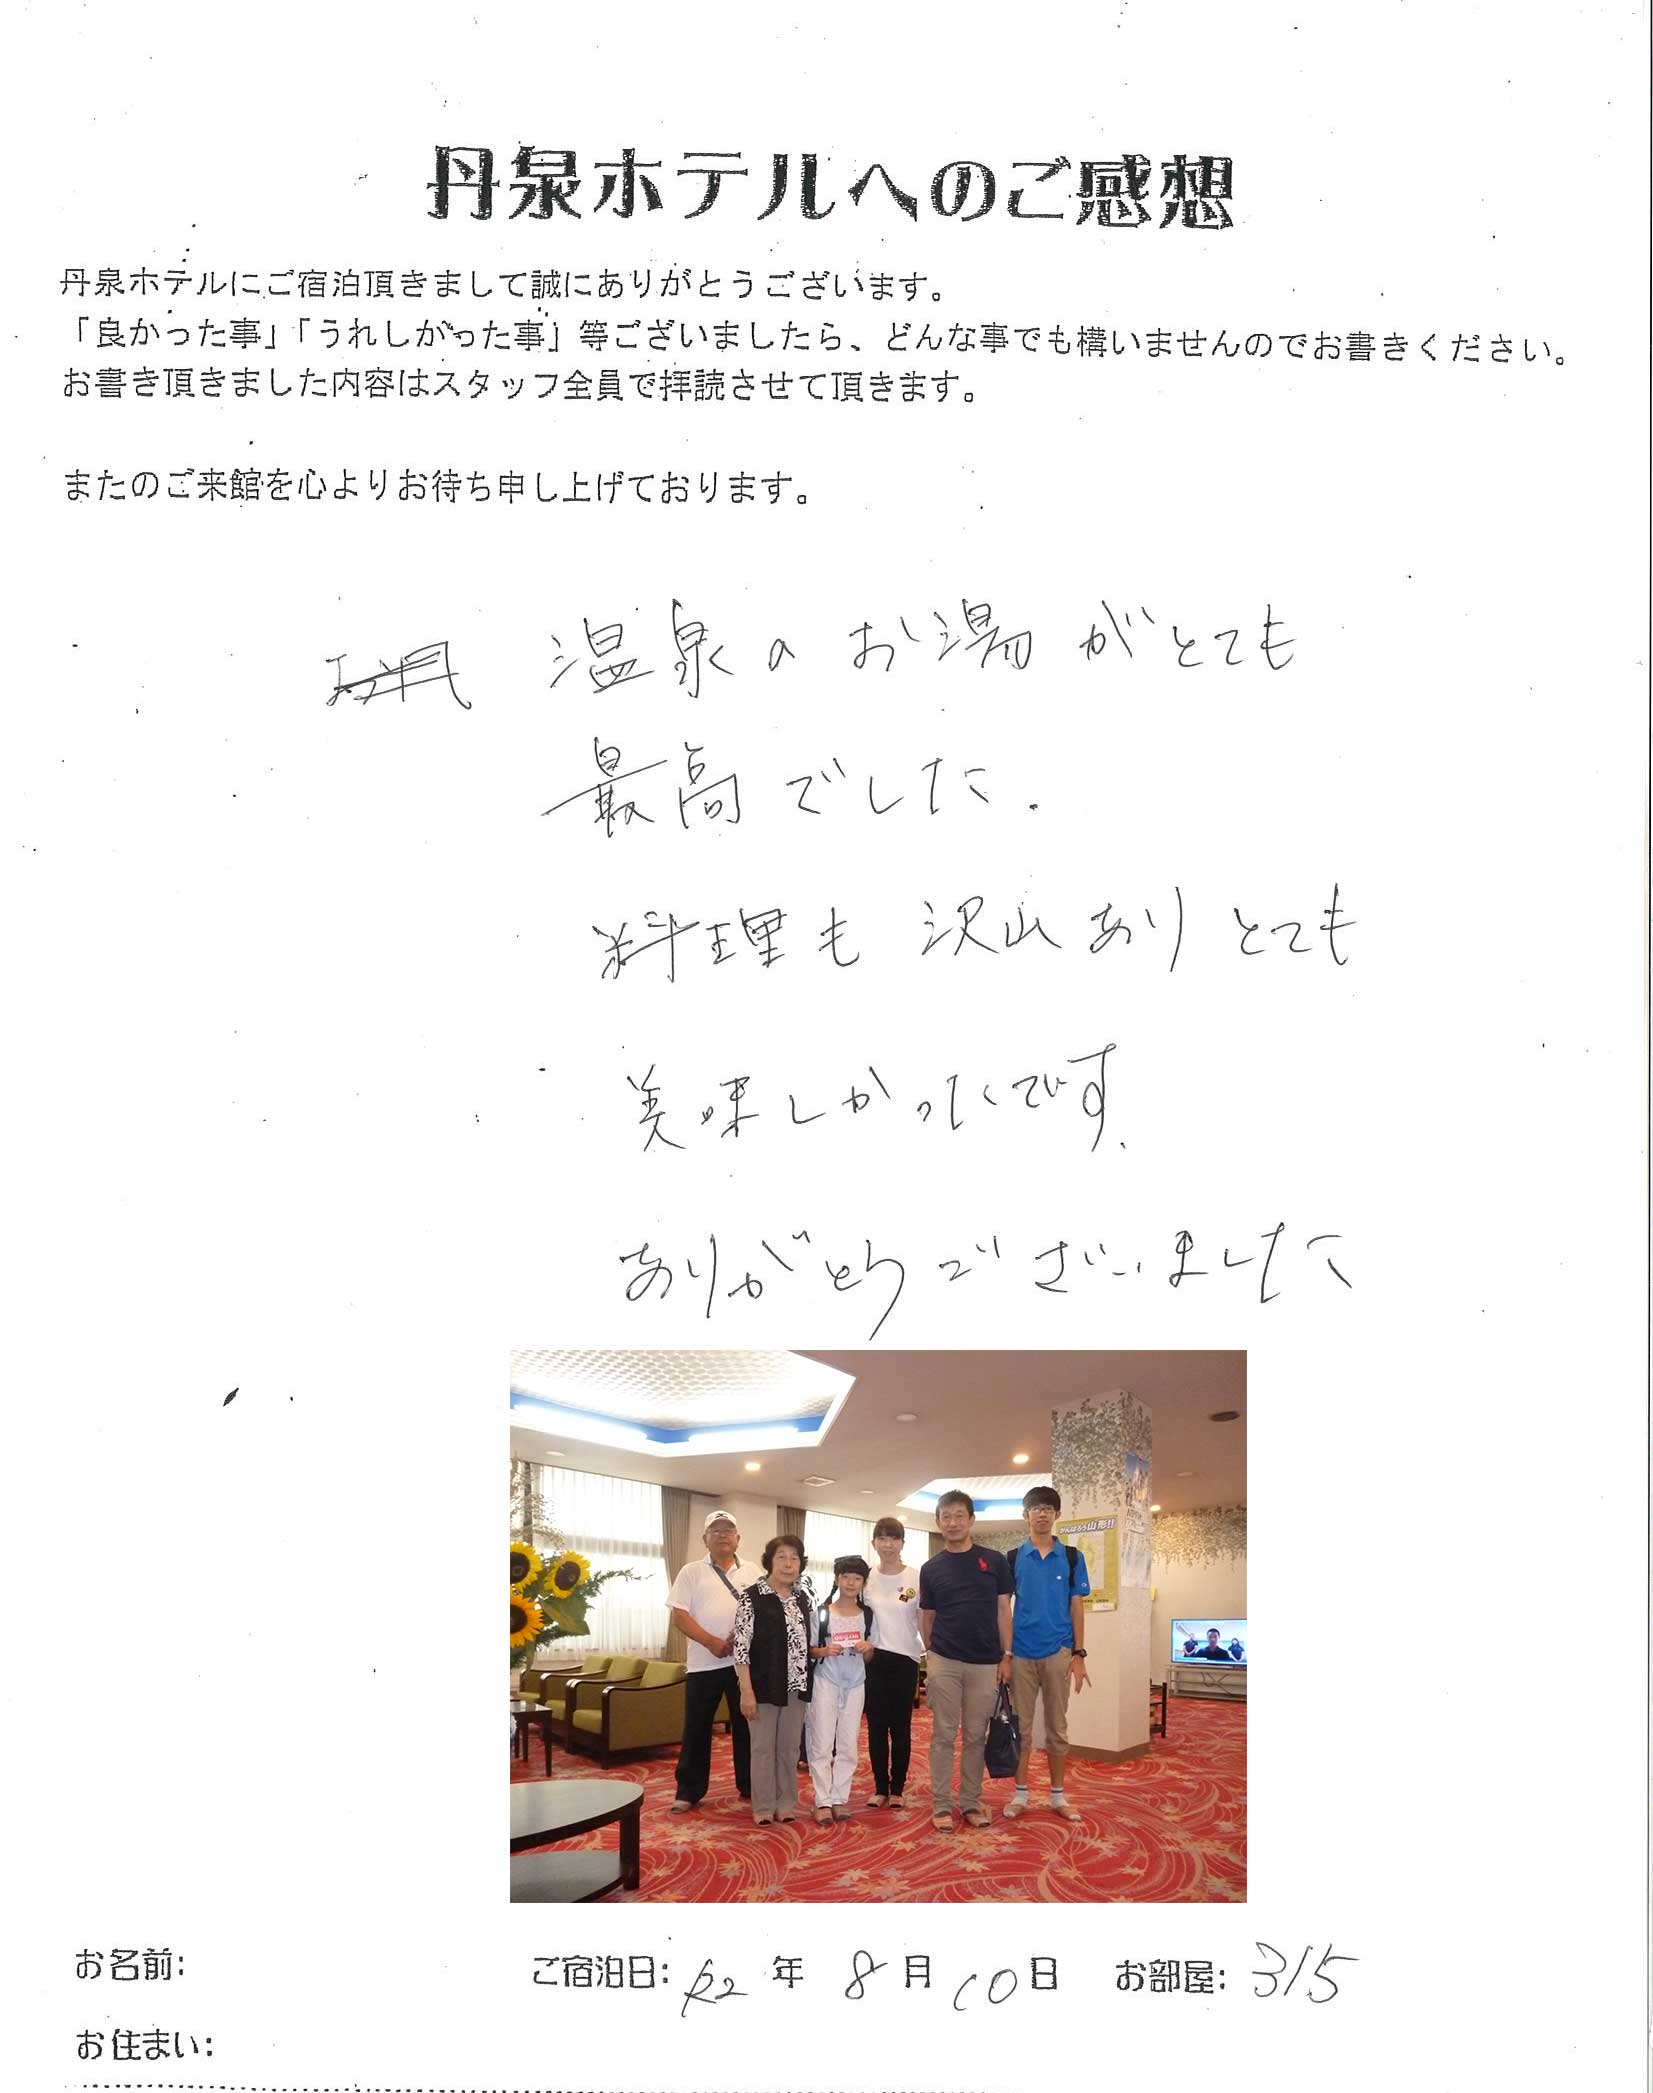 丹泉ホテルへのご感想
丹泉ホテルにご宿泊頂きまして誠にありがとうございます。
「良かった事」「うれしかった事」等ございましたら、どんな事でも構いませんのでお書きください。
お書き頂きました内容はスタッフ全員で拝読させて頂きます。
またのご来館を心よりお待ち申し上げております。
温泉のお湯がとても
最高でした.
料理も沢山ありとても
美味しかったです.
ありがとうございました
がんばろう山形!!
お名前:
ご宿泊日: R2 年 8 月 10 日 お部屋: 315
お住まい: